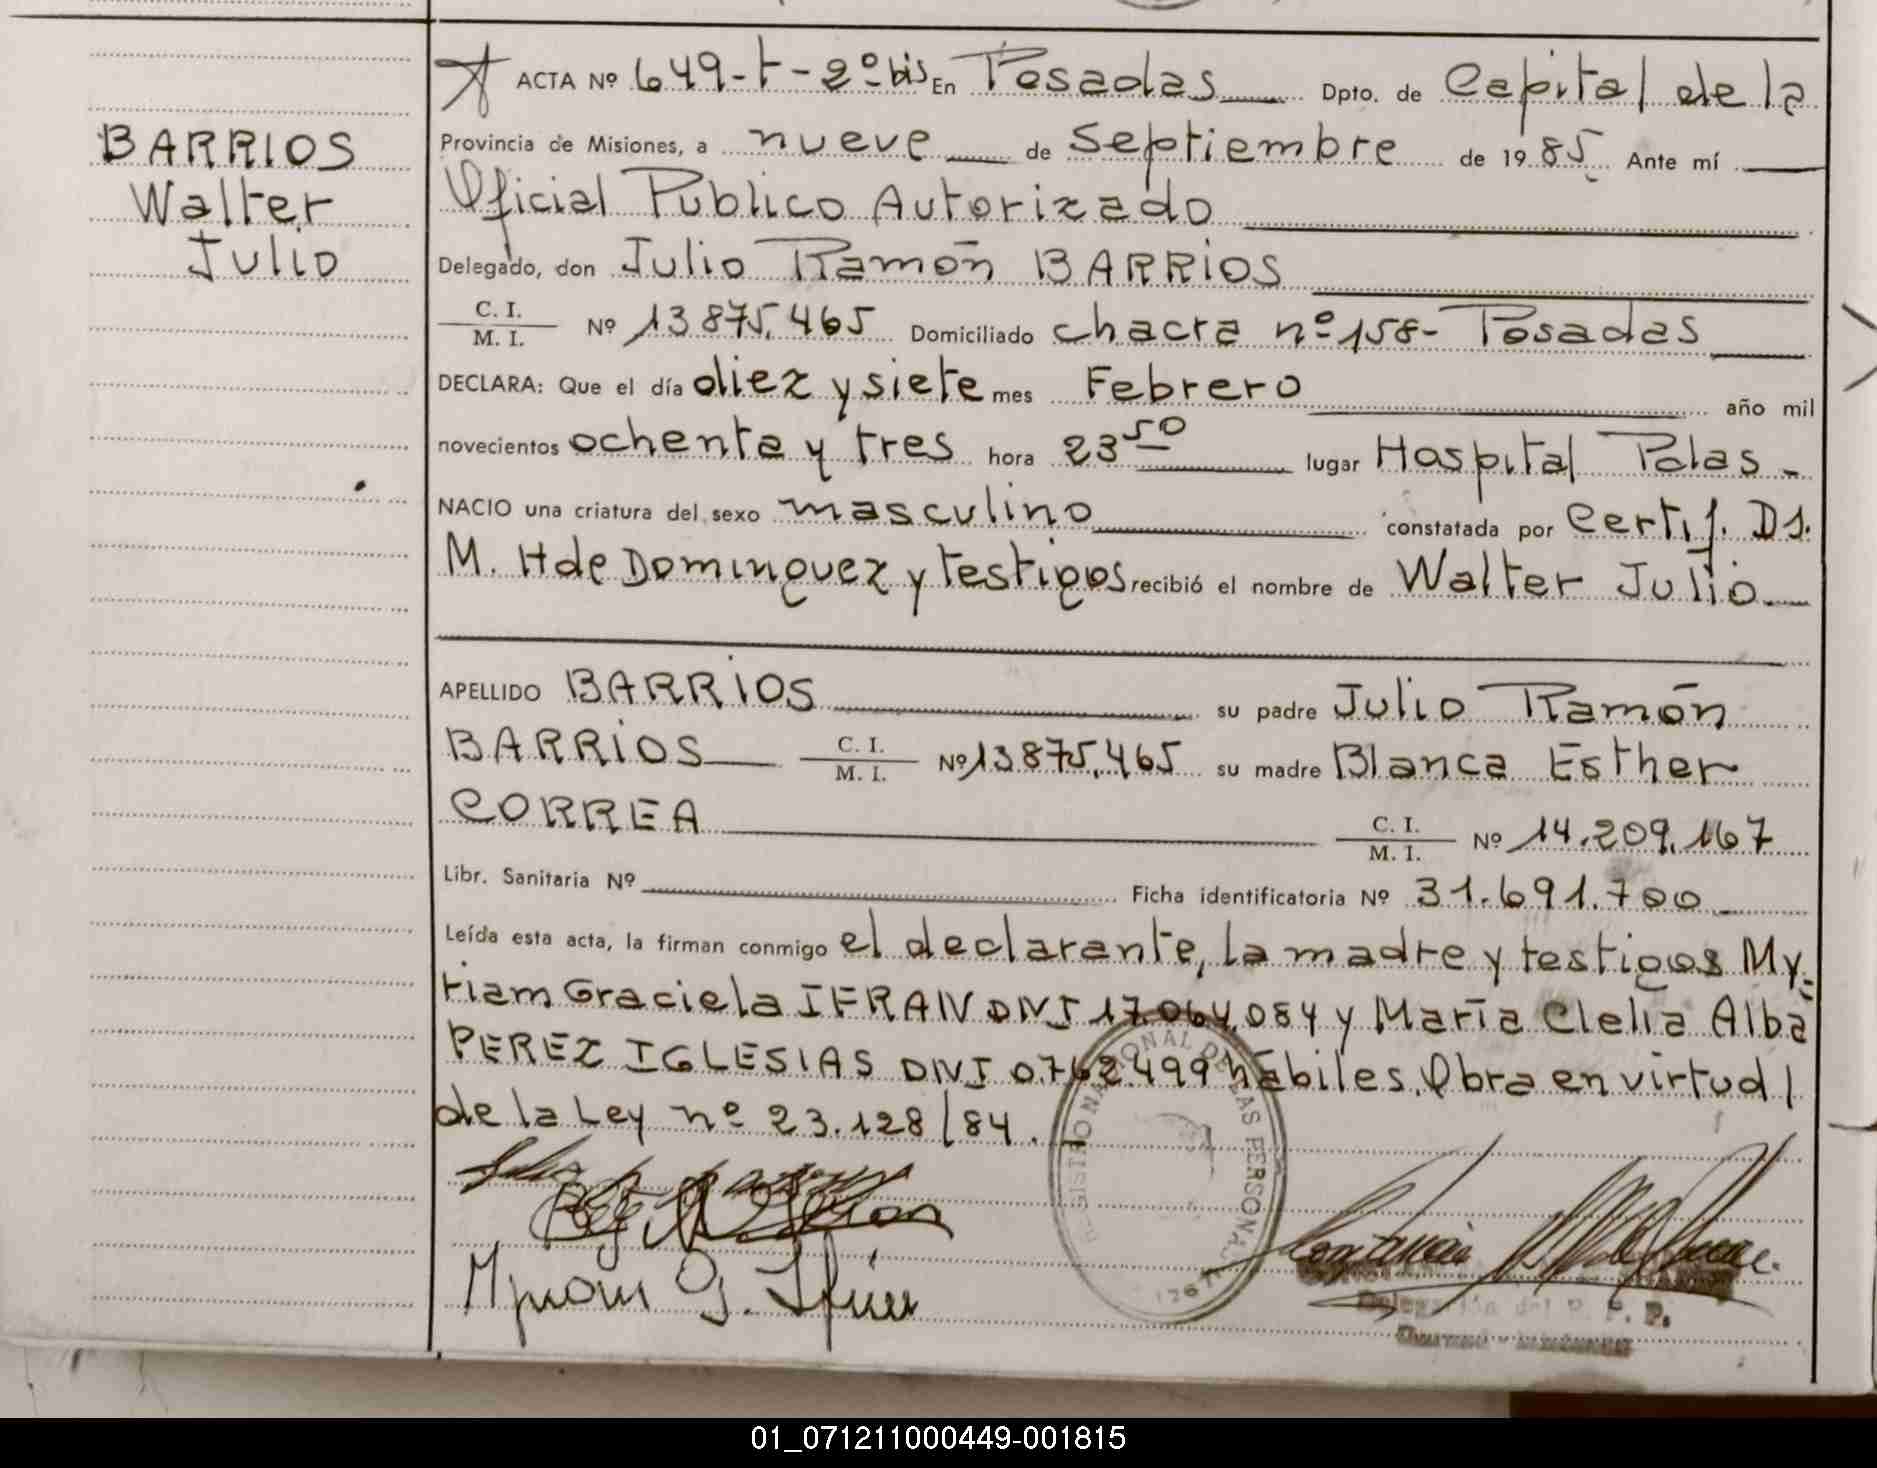 BARRIOS
Walter
Julio
ACTA Nº 649-t-2º bis En Posadas Dpto. de Capital de la
Provincia de Misiones, a nueve de Septiembre de 1985 Ante mí
Oficial Publico Autorizado
Delegado, don Julio Ramón BARRIOS
C. I. / M. I. Nº 13.875.465 Domiciliado chacra nº 158- Posadas
DECLARA: Que el día diez y siete mes Febrero año mil
novecientos ochenta y tres hora 23 50 lugar Hospital Polas-
NACIO una criatura del sexo masculino constatada por Certif. Ds.
M. H de Dominguez y testigos recibió el nombre de Walter Julio
APELLIDO BARRIOS su padre Julio Ramón
BARRIOS C. I. / M. I. Nº 13.875.465 su madre Blanca Esther
CORREA C. I. / M. I. Nº 14.209.167
Libr. Sanitaria Nº Ficha identificatoria Nº 31.691.700
Leída esta acta, la firman conmigo el declarante, la madre y testigos My-
riam Graciela IFRAN DNI 17.064.084 y María Clelia Alba
PEREZ IGLESIAS DNI 0.762.499 hábiles. Obra en virtud
de la Ley nº 23.128/84.
REGISTRO NACIONAL DE LAS PERSONAS
Delegación del R. P. P.
01_071211000449-001815